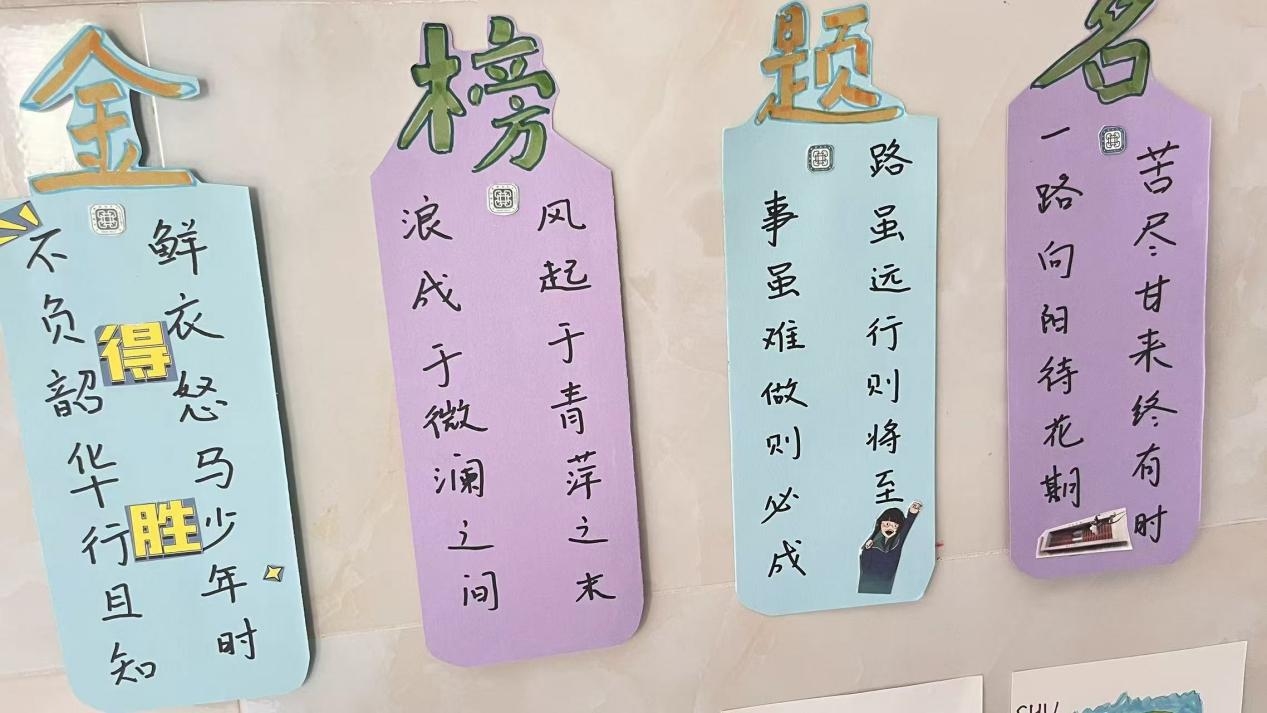 金榜题名
鲜衣怒马少年时
不负韶华行且知
得胜
风起于青萍之末
浪成于微澜之间
路虽远行则将至
事虽难做则必成
苦尽甘来终有时
一路向阳待花期